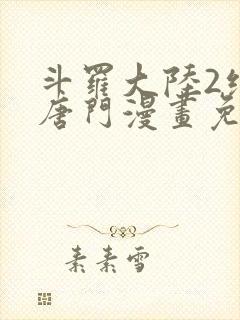 斗羅大陸2
唐門漫畫免
素素雪